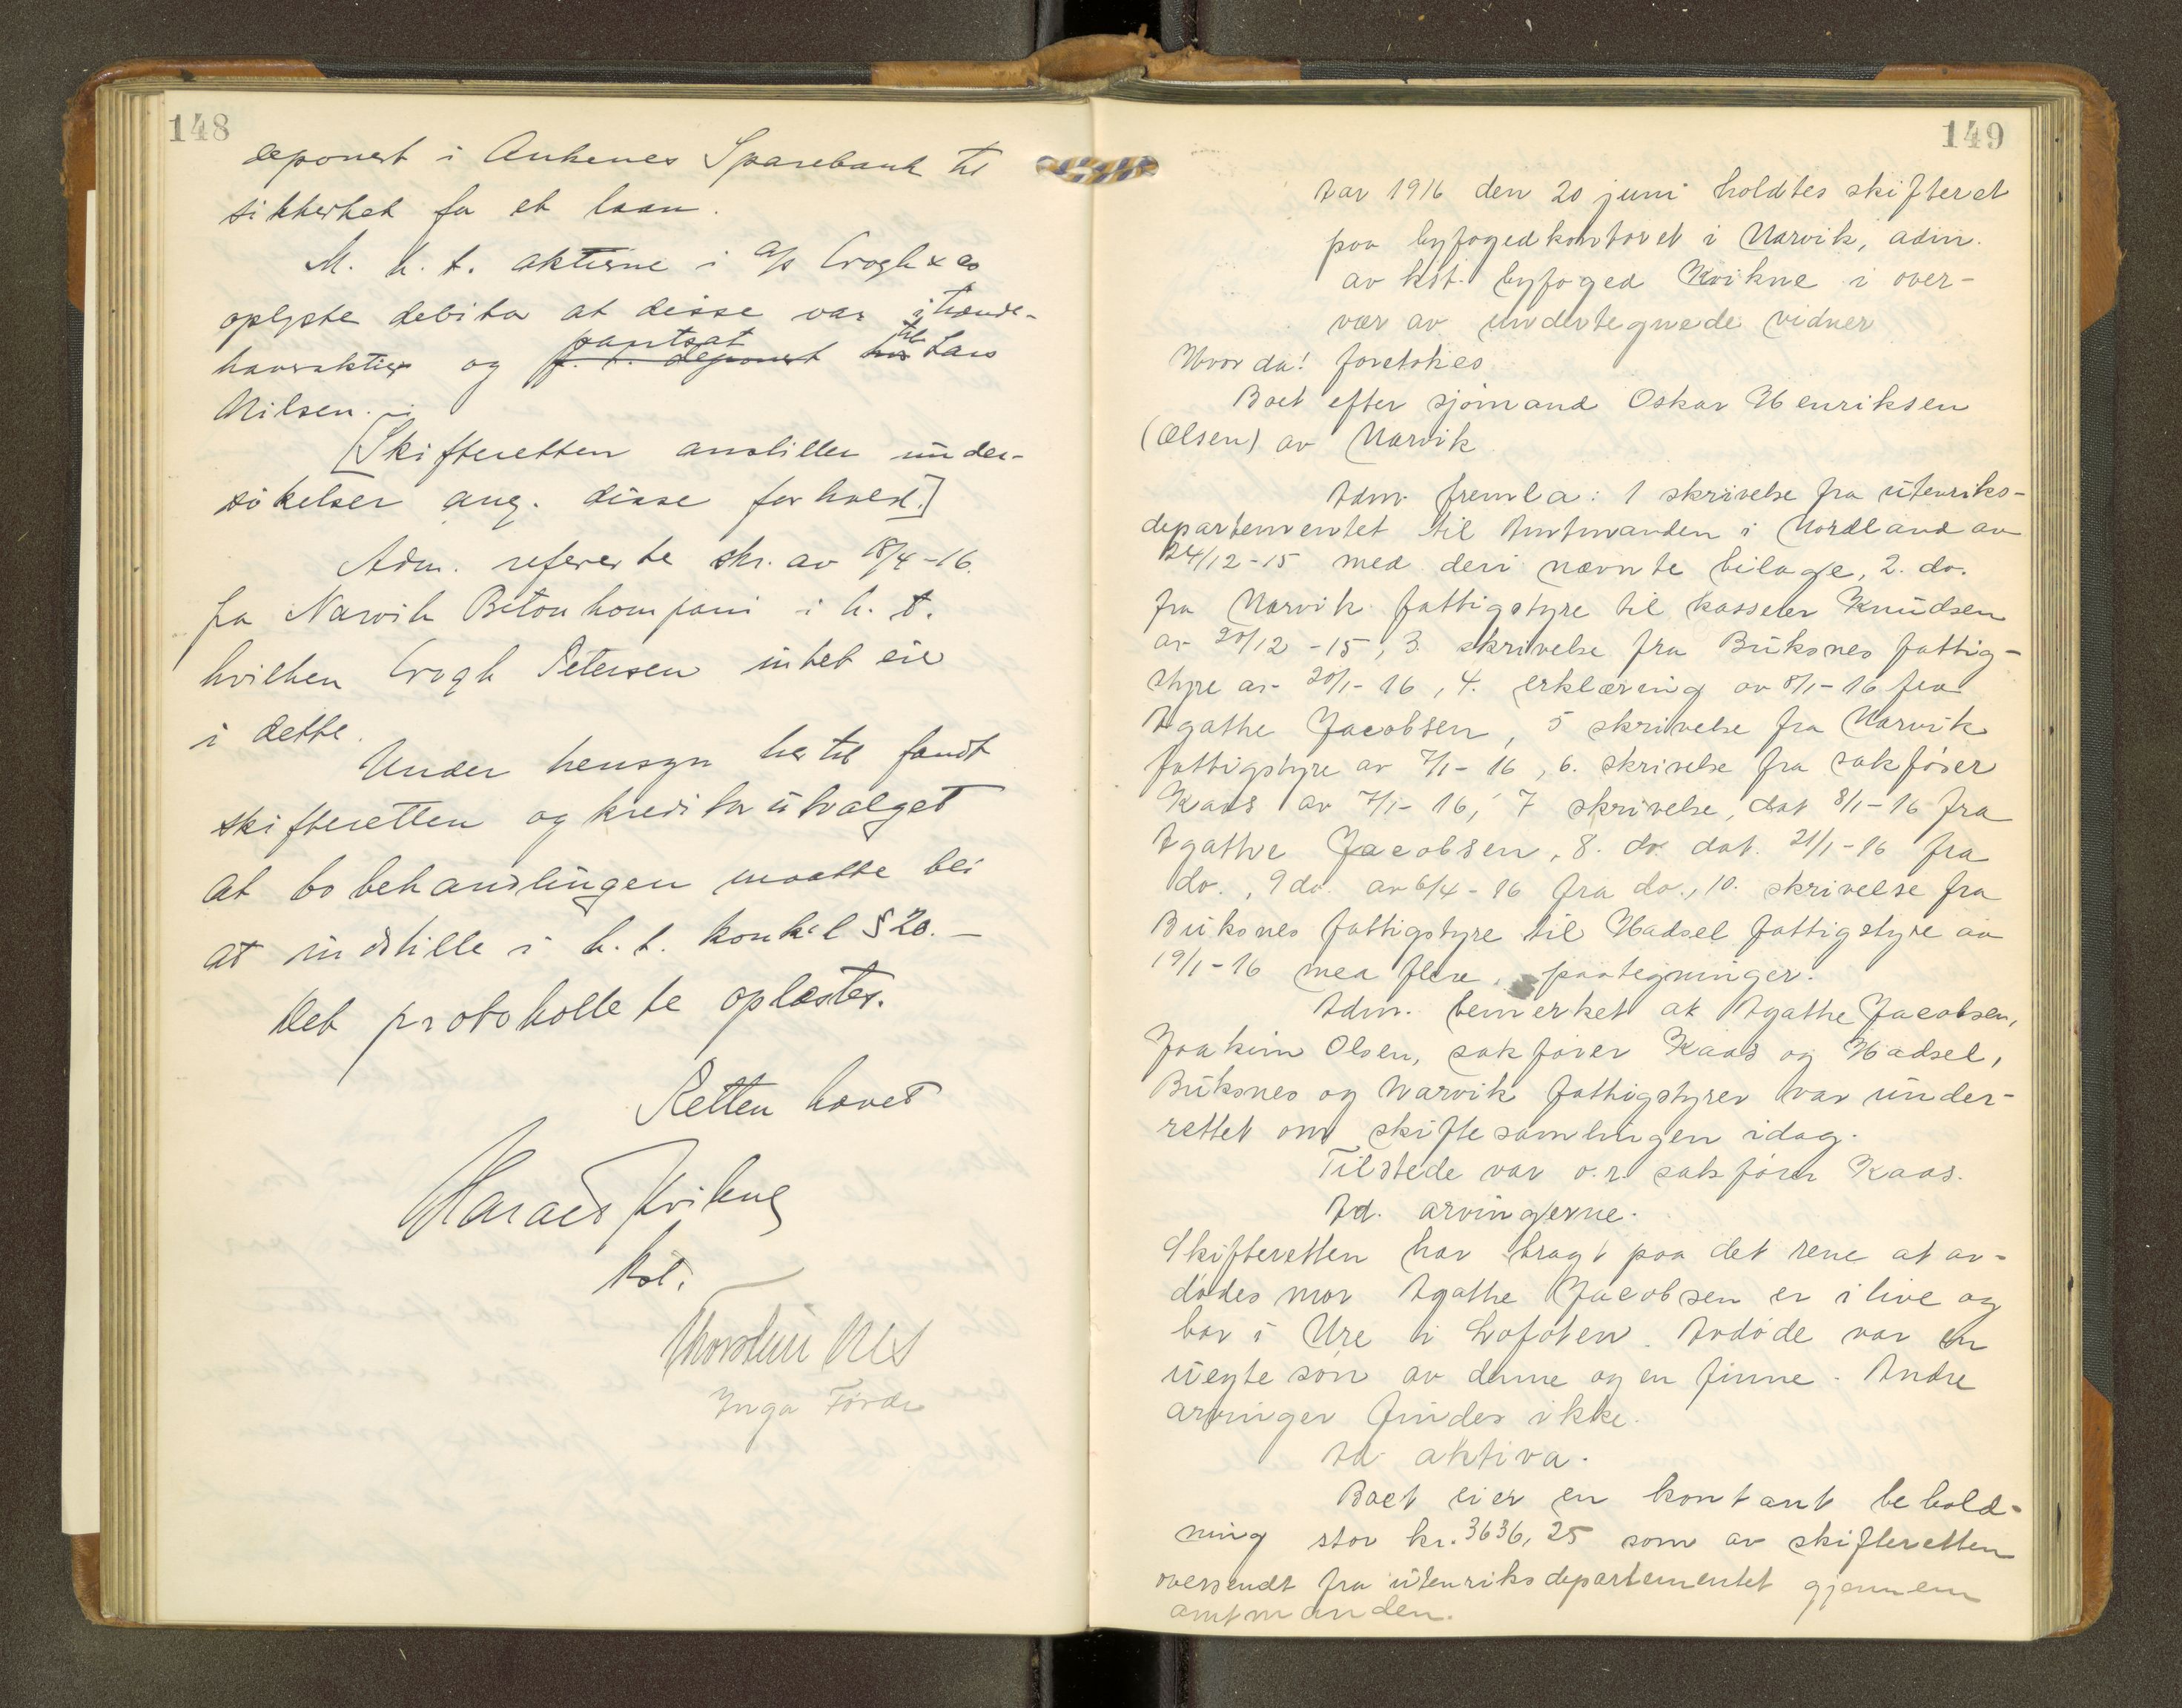 148
deponert i Ankenes Sparebank til
sikkerhet for et laan.
M. h. t. aktierne i A/S Crogh & Co
oplyste debitor at disse var ihænde-
haveraktier og f. t. deponert pantsat hos til Lars
Nilsen.
[Skifteretten anstiller under-
søkelser ang. disse forhold.]
Adm. refererte skr. av 18/4-16.
fra Narvik Betonkompani i h. t.
hvilken Crogh Petersen intet eie
i dette.
Under hensyn hertil fandt
skifteretten og kreditorutvalget
at bobehandlingen maatte bli
at indstille i h. t. konk.l § 20.-
Det protokollerte oplæstes.
Retten hævet
Harald Kvikne
kst.
Thorstein
Inga Førde
149
Aar 1916 den 20 juni holdtes skifteret
paa byfogedkontoret i Narvik, adm.
av kst. byfoged Kvikne i over-
vær av undertegnede vidner
Hvor da! foretokes
Boet efter sjømand Oskar Henriksen
(Olsen) av Narvik
Adm. fremla: 1 skrivelse fra utenriks-
departementet til Amtmanden i Nordland av
24/12-15 med deri nævnte bilage, 2. do.
fra Narvik fattigstyre til kasserer Knudsen
av 20/12-15, 3 skrivelse fra Buksnes fattig-
styre av 20/1-16, 4. erklæring av 8/1-16 fra
Agathe Jacobsen, 5 skrivelse fra Narvik
fattigstyre av 7/1-16, 6. skrivelse fra sakfører
Kaas av 7/1-16, 7 skrivelse, dat 8/1-16 fra
Agathe Jacobsen, 8. do dat. 21/1-16 fra
do., 9 do. av 6/4-16 fra do., 10. skrivelse fra
Buksnes fattigstyre til Hadsel fattigstyre av
19/1-16 med flere paategninger.
Adm. bemerket at Agathe Jacobsen,
Joakim Olsen, sakfører Kaas og Hadsel,
Buksnes og Narvik fattigstyrer var under-
rettet om skiftesamlingen idag.
Tilstede var o.r. sakfører Kaas.
Ad. arvingerne.
Skifteretten har bragt paa det rene at av-
dødes mor Agathe Jacobsen er i live og
bor i Ure i Lofoten. Avdøde var en
uegte søn av denne og en finne. Andre
arvinger findes ikke.
Ad aktiva.
Boet eier en kontant behold-
ning stor kr. 3636,25 som av skifteretten
oversendt fra utenriksdepartementet gjennem
amtmanden.